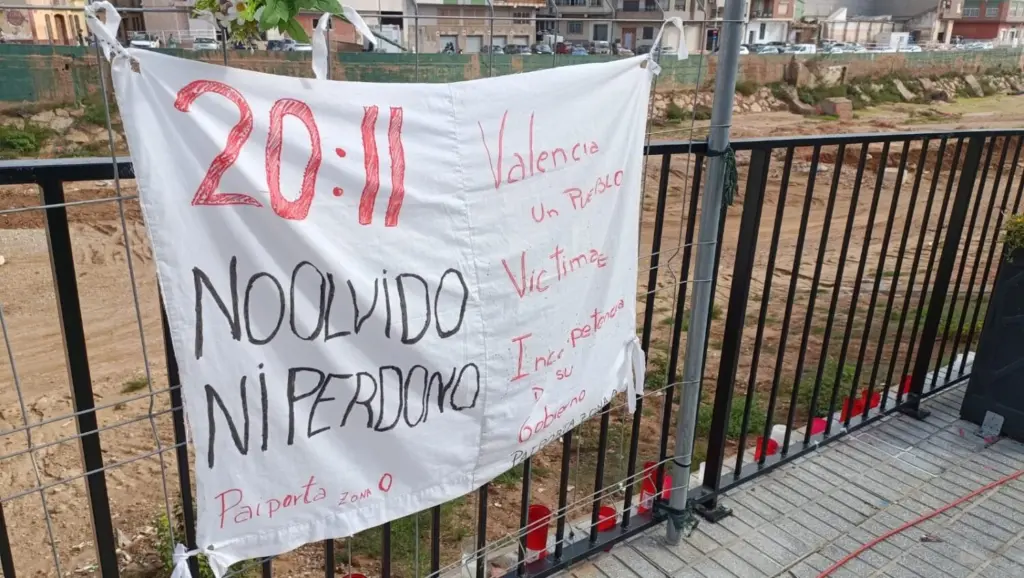 20:11
NO OLVIDO
NI PERDONO
Paiporta ZONA 0
Valencia
un PUEBLO
Victima
Incompetencia
D
su
Gobierno